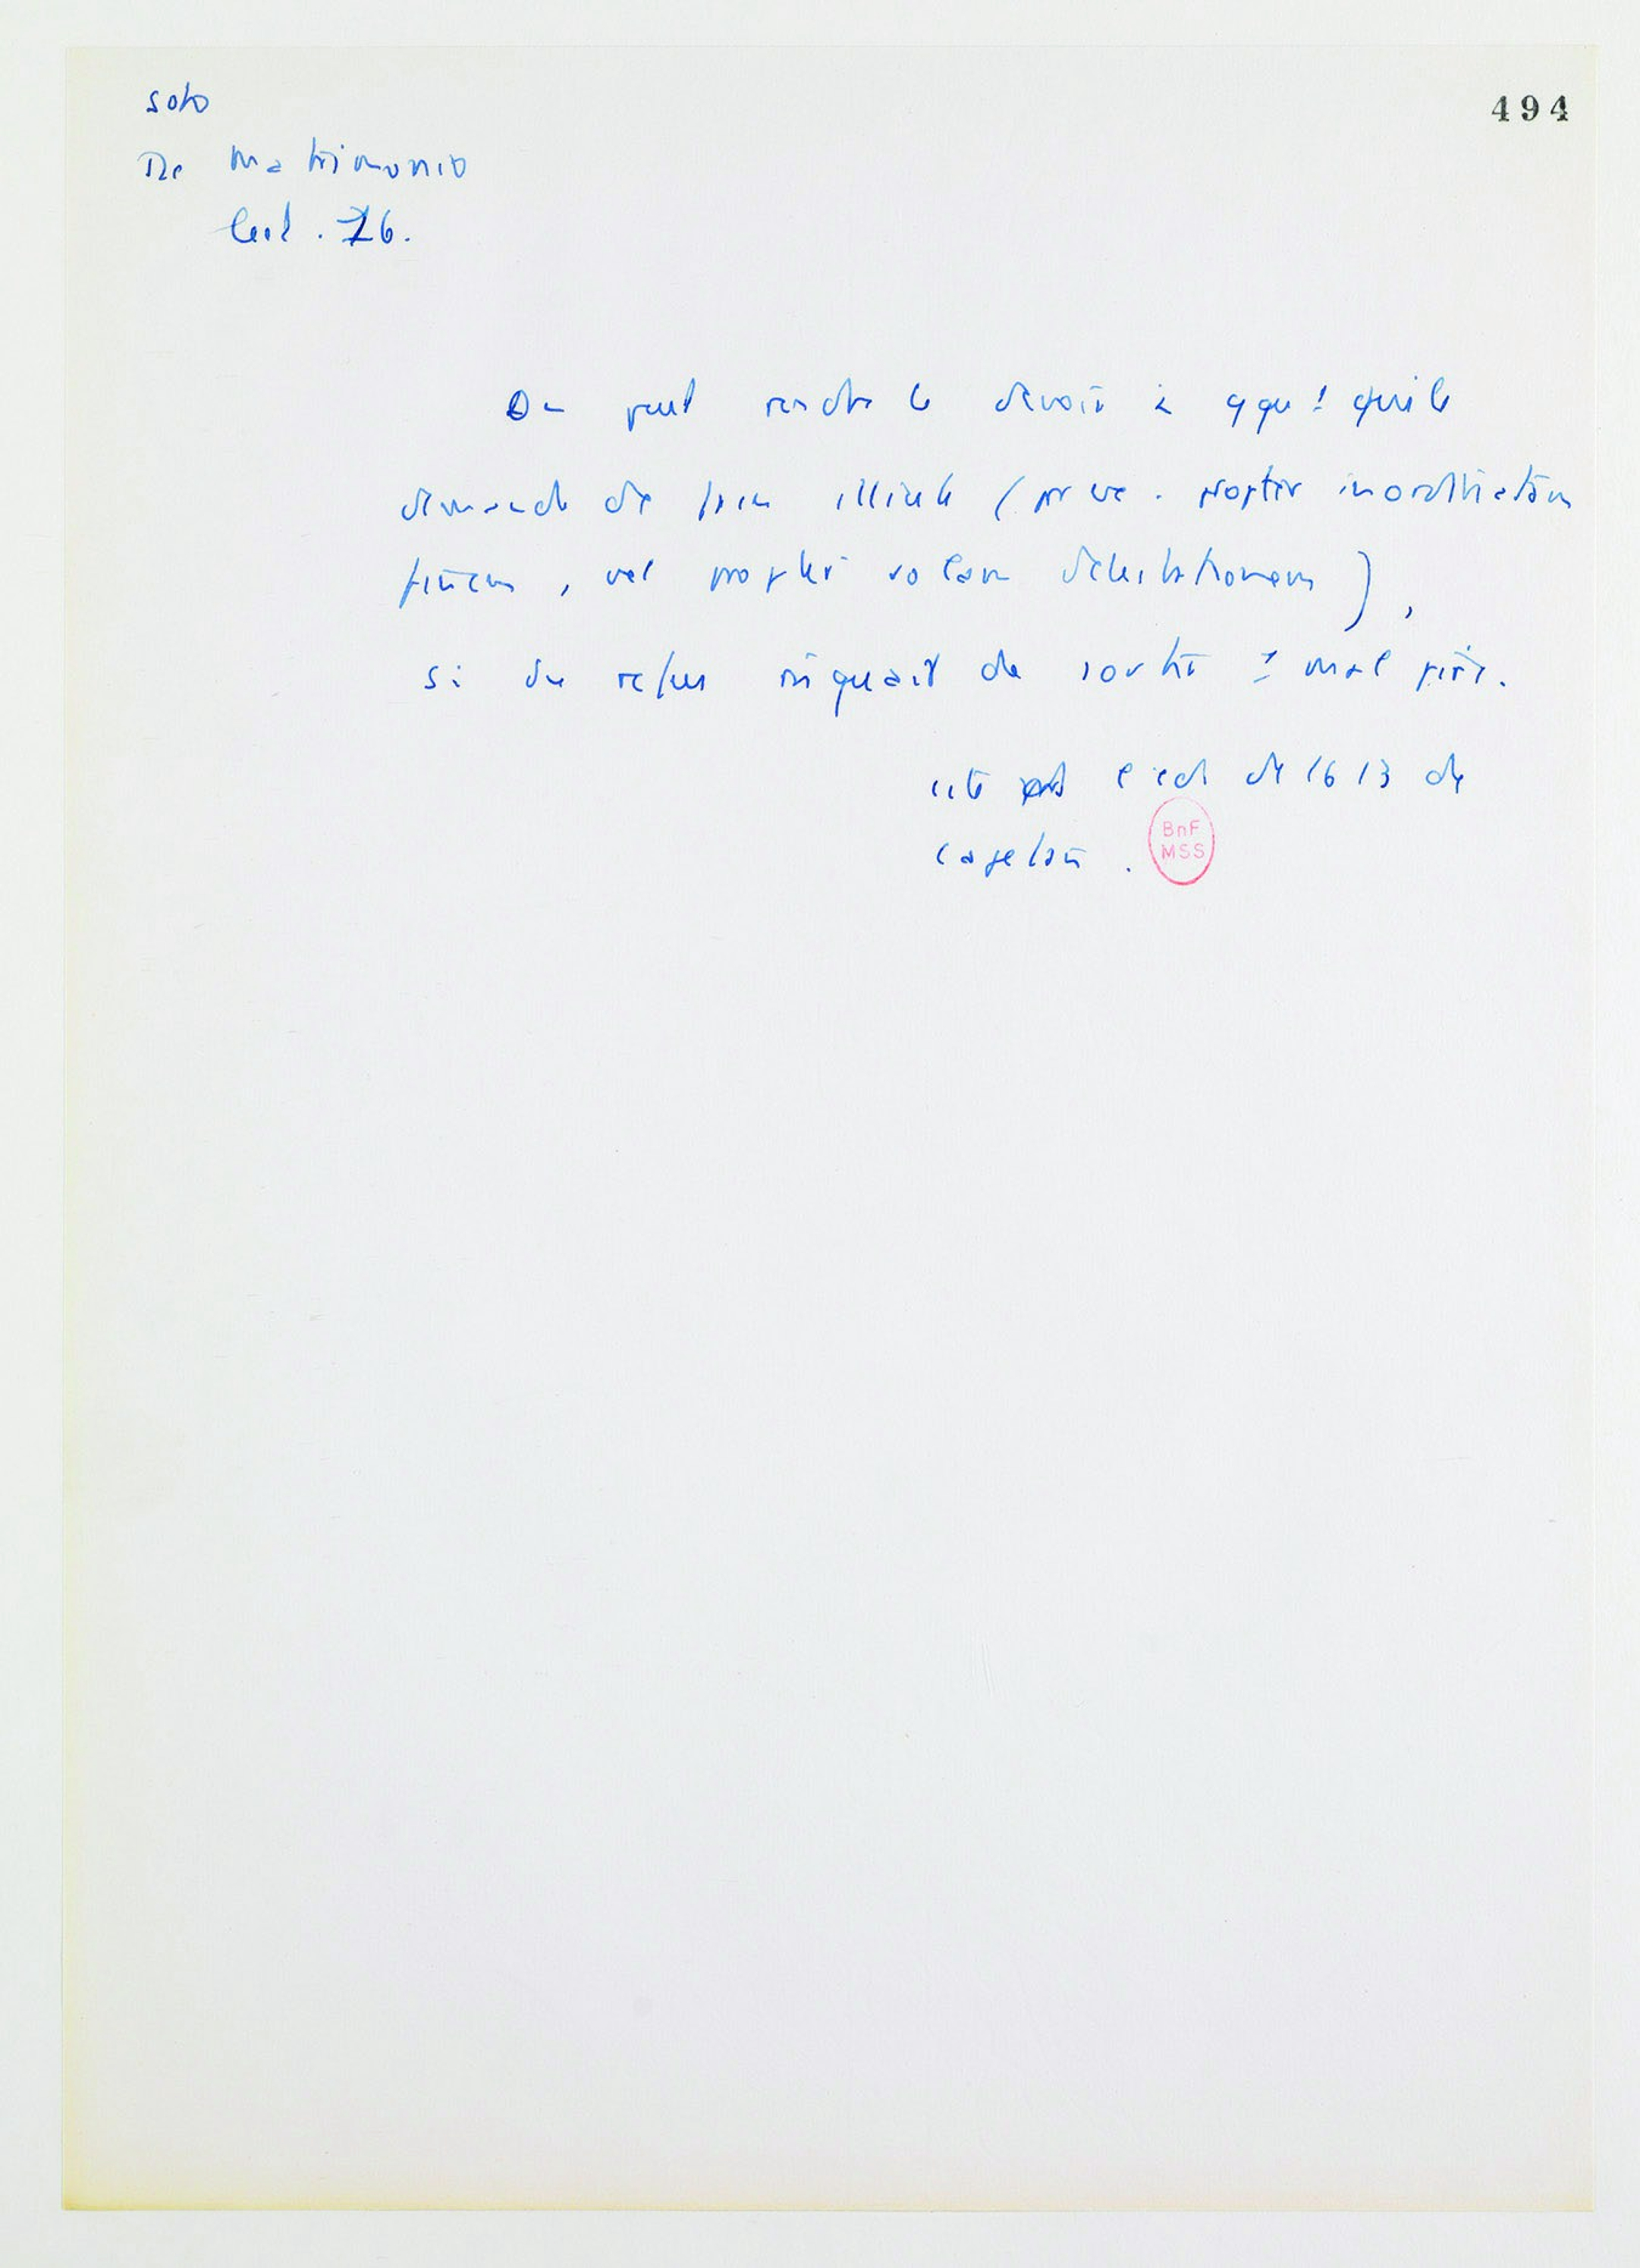 Soto
494
De Matrimonio
lect. 76.
On peut rendre le devoir à qqu' qui le
demande de façon illicite (par ex. propter inordinatam
finem, vel propter solam delectationem),
si du refus risquait de sortir 1 mal pire.
cité l'ed de 1613 de
Cajetan.
BnF
MSS